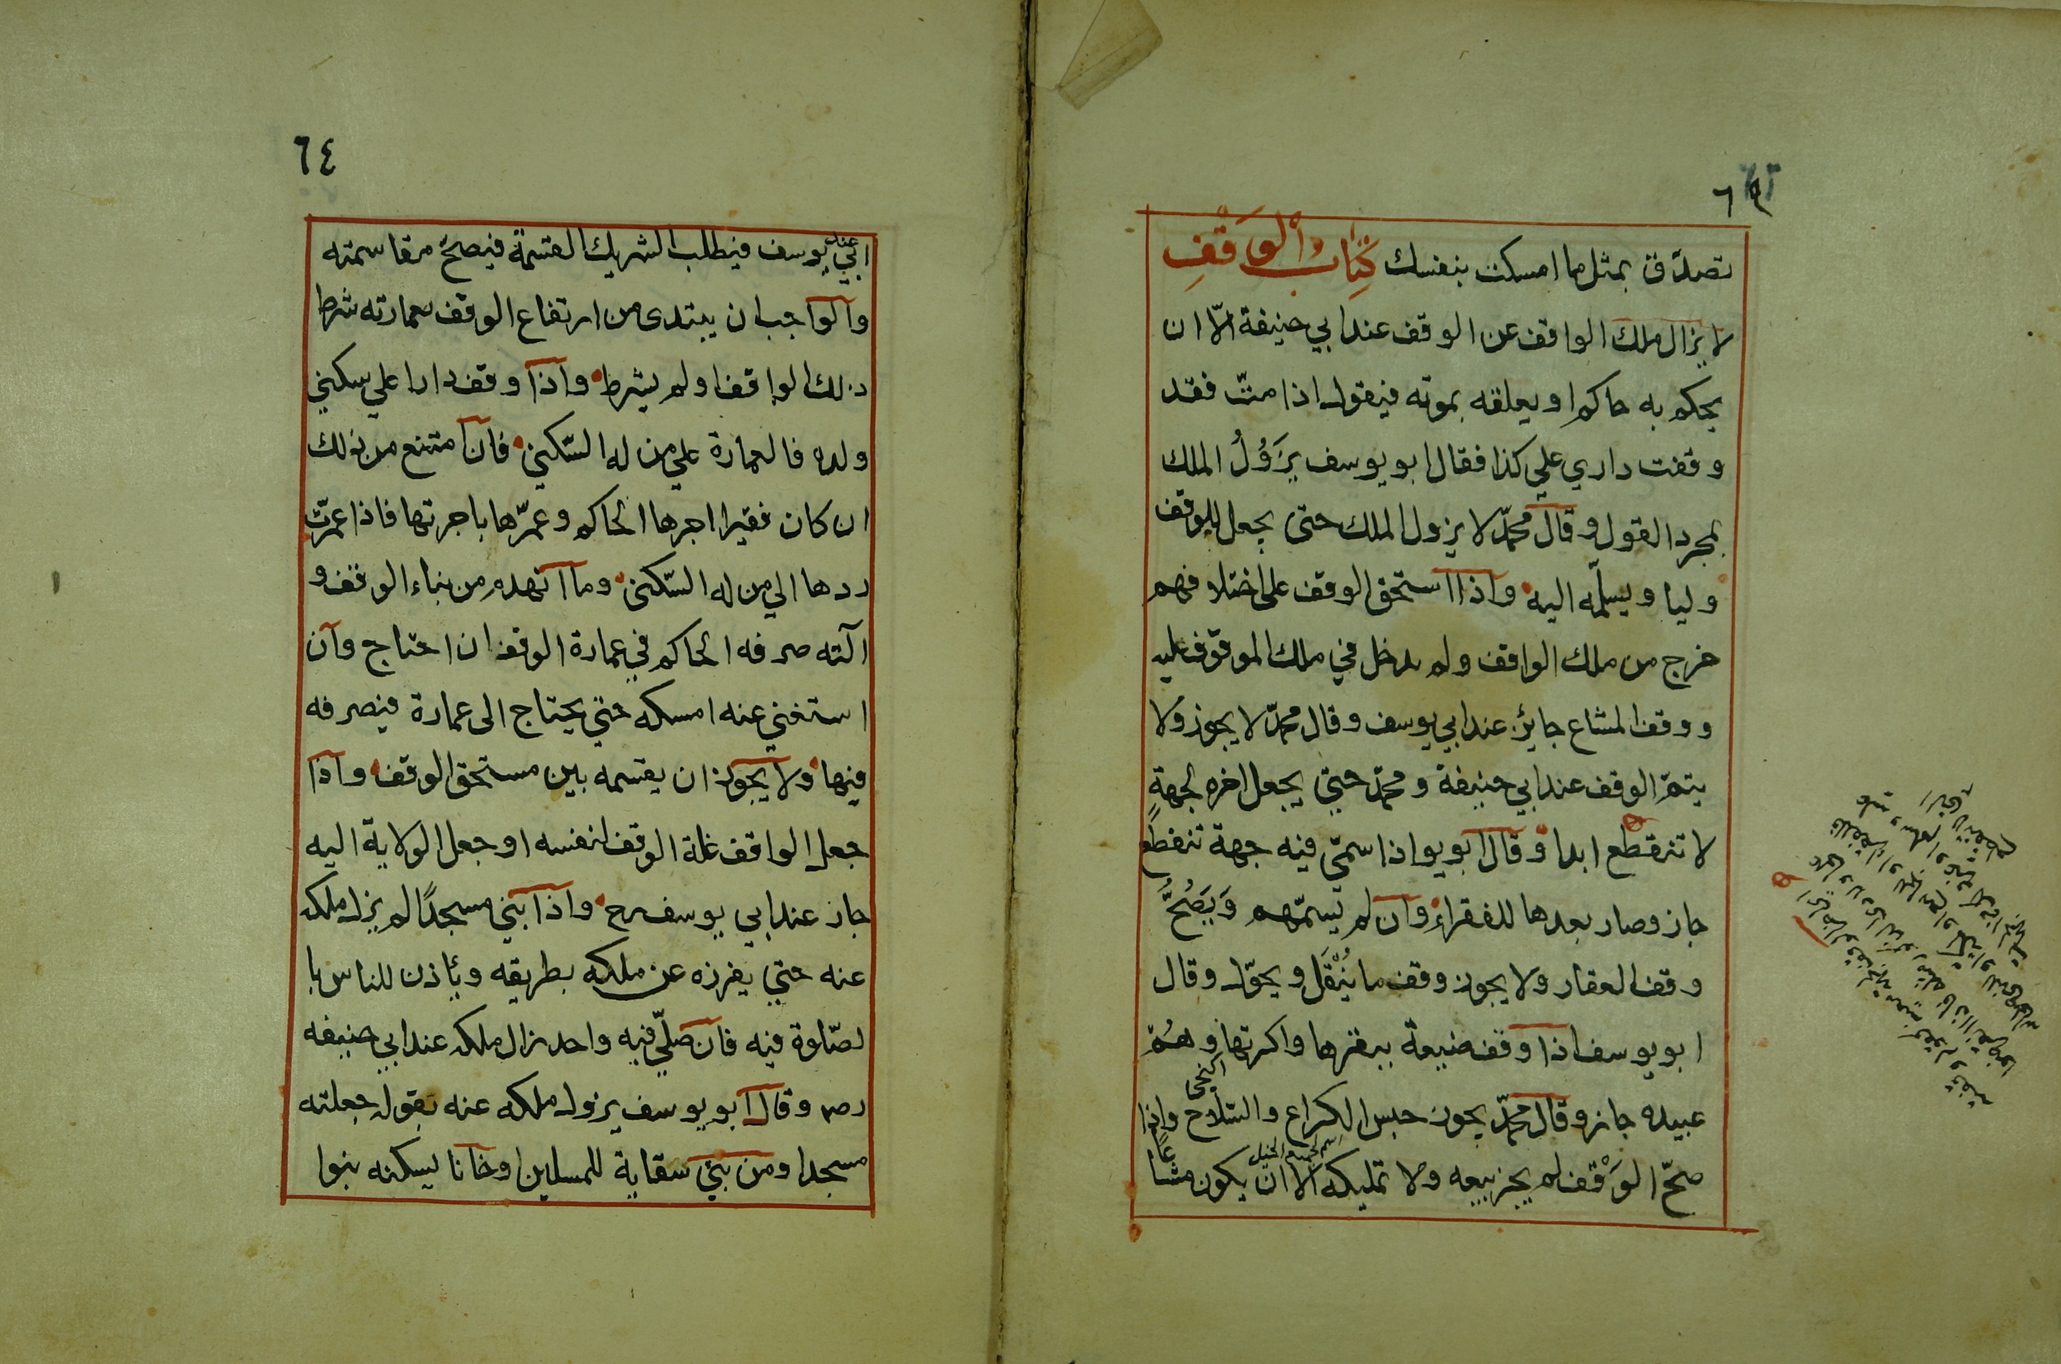 تصدّق بمثل ما امسكت بنفسك كِتَابُ الْوَقْفِ
لا يزال ملك الواقف عن الوقف عند ابي حنيفة الّا ان
يحكم به حاكم او يعلقه بموته فيقول اذا متّ فقد
وقفت داري علي كذا فقال ابو يوسف يَزَوُلُ الملك
بمجرد القول وقال محمّد لا يزول الملك حتى يجعل للوقف
وليا ويسلّمه اليه واذا استحق الوقف على اختلافهم
خرج من ملك الواقف ولم يدخل في ملك الموقوف عليه
ووقف المشاع جايز عند ابي يوسف وقال محمّد لا يجوز ولا
يتمّ الوقف عند ابي حنيفة ومحمّد حتي يجعل اخره لجهةٍ
لا تنقطع ابدا وقال ابو يو اذا سمّي فيه جهة تنقطع
جاز وصار بعدها للفقراء وان لم يسمّهم وَيَصُحُّ
وقف العقار ولا يجوز وقف ما يُنْقَل ويحوّل وقال
ابو يوسف اذا وقف ضيعة ببقرها واكرتها وهُمْ
عبيده جاز وقال محمّد يجوز حبس الكراع والسّلاح واذا
صحّ الوَقْف لم يجز بيعه ولا تمليكه الا ان يكون مشاعًا
٦٤
عند ابي يوسف فيطلب الشريك القسمة فيصحّ مقاسمته
والواجب ان يبتدى من ارتفاع الوقف بعمارته شرط
ذلك الواقف او لم يشرط واذا وقف دارا علي سكني
ولده فالعمارة علي من له السّكني فان امتنع من ذلك
ان كان فقيرا اجرها الحاكم وعمّرها باجرتها فاذا عمرّت
ردها الي من له السّكني وما انهدم من بناء الوقف و
آلته صرفه الحاكم في عمارة الوقف ان احتاج وان
استغني عنه امسكه حتي يحتاج الى عمارة فيصرفه
فيها ولا يجوز ان يقسمه بين مستحق الوقف واذا
جعل الواقف غلة الوقف لنفسه او جعل الولاية اليه
جاز عند ابي يوسف رح واذا بني مسجدًا لم يزل ملكه
عنه حتي يفرزه عن ملكه بطريقه ويأذن للناس با
لصّلوة فيه فان صلّي فيه واحد زال ملكه عند ابي حنيفه
رص وقال ابو يوسف يزول ملكه عنه بقوله جعلته
مسجدا ومن بني سقاية للمسلمين او خانا يسكنه بنوا